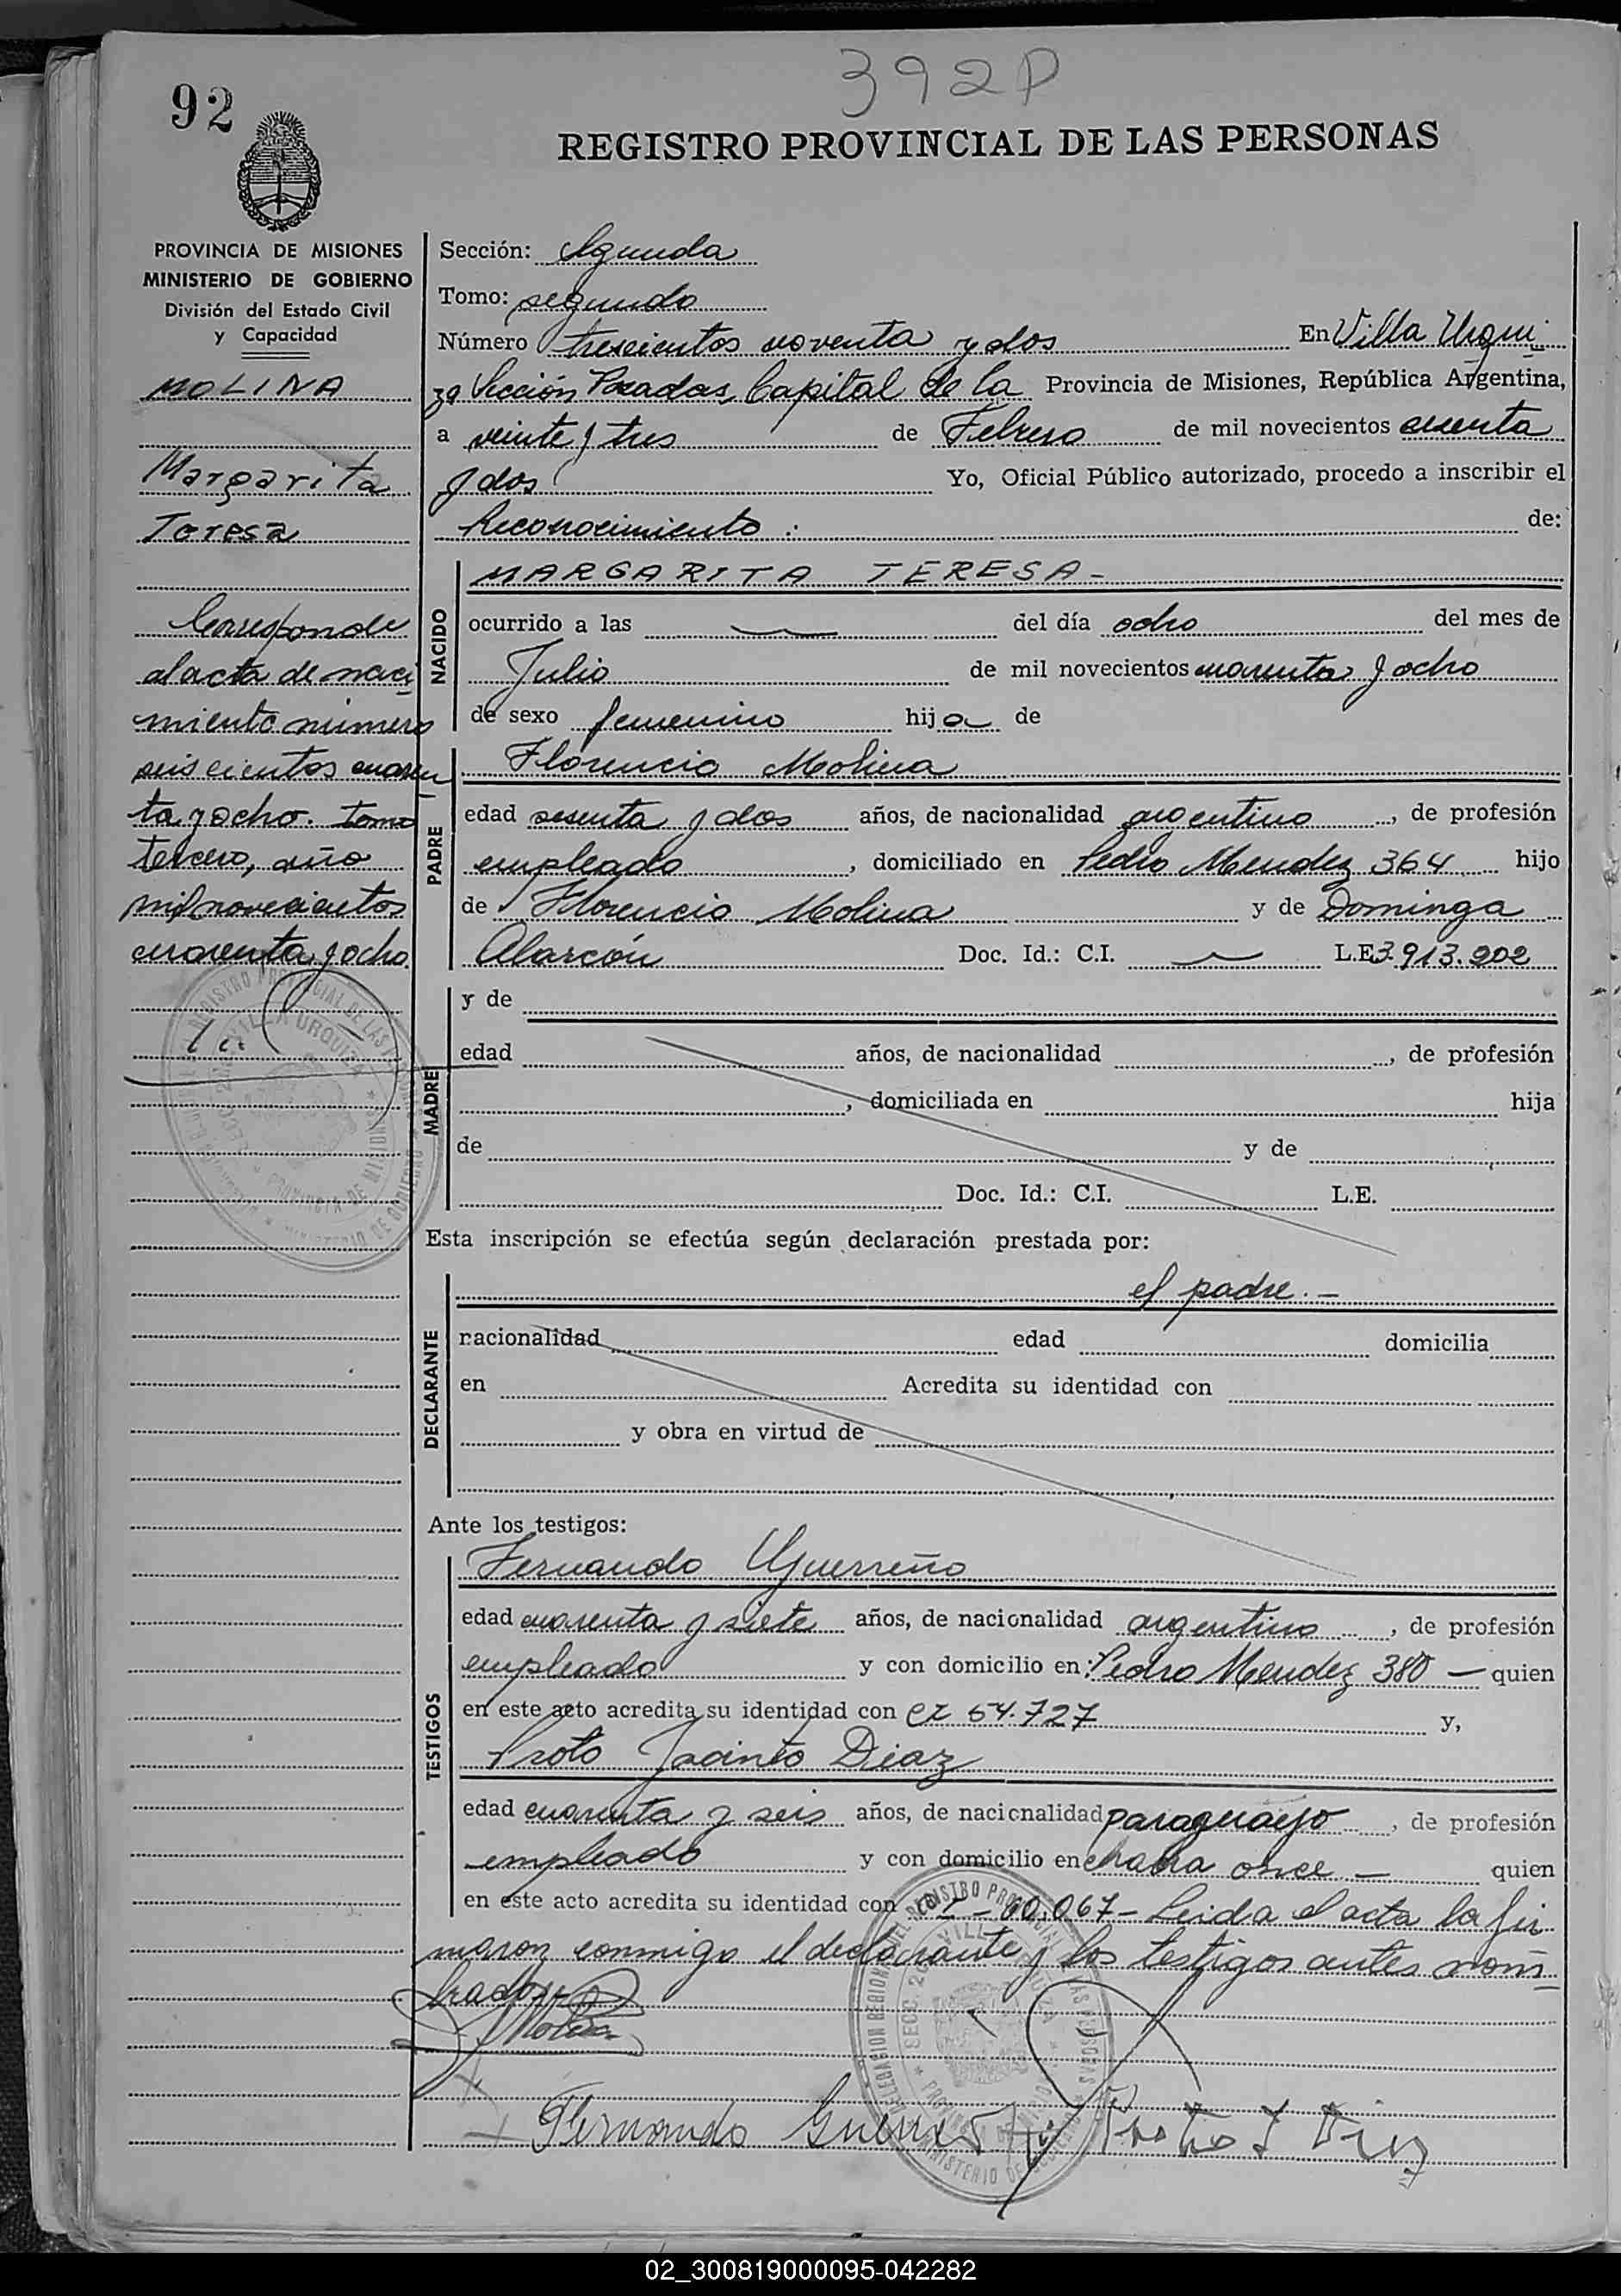 392P
92
REGISTRO PROVINCIAL DE LAS PERSONAS
PROVINCIA DE MISIONES
MINISTERIO DE GOBIERNO
División del Estado Civil
y Capacidad
MOLINA
Margarita
Teresa
Corresponde
al acta de naci
miento número
seis cientos cuaren
ta y ocho. Tomo
tercero, año
mil novecientos
cuarenta y ocho.
Sección: Segunda
Tomo: segundo
Número trescientos noventa y dos En Villa Urqui
za Sección Posadas, Capital de la Provincia de Misiones, República Argentina,
a veinte y tres de Febrero de mil novecientos sesenta
y dos Yo, Oficial Público autorizado, procedo a inscribir el
Reconocimiento : de:
NACIDO
MARGARITA TERESA-
ocurrido a las del día ocho del mes de
Julio de mil novecientos cuarenta y ocho
de sexo femenino hija de
PADRE
Florencio Molina
edad sesenta y dos años, de nacionalidad argentino, de profesión
empleado, domiciliado en Pedro Mendez 364 hijo
de Florencio Molina y de Dominga
Alarcón Doc. Id.: C.I. L.E. 3.913.202
MADRE
y de
edad años, de nacionalidad , de profesión
, domiciliada en hija
de y de
Doc. Id.: C.I. L.E.
Esta inscripción se efectúa según declaración prestada por:
DECLARANTE
el padre.-
nacionalidad edad domicilia
en Acredita su identidad con
y obra en virtud de
Ante los testigos:
TESTIGOS
Fernando Guerreño
edad cuarenta y siete años, de nacionalidad argentino, de profesión
empleado y con domicilio en: Pedro Mendez 380 — quien
en este acto acredita su identidad con CI 54.727 y,
Proto Jacinto Diaz
edad cuarenta y seis años, de nacionalidad paraguayo, de profesión
empleado y con domicilio en chacra once — quien
en este acto acredita su identidad con CI - 60.067- Leida el acta la fir
maron conmigo el declarante y los testigos antes nom
brados.-
FMolina
Fernando Guerreño Proto J Diaz
02_300819000095-042282